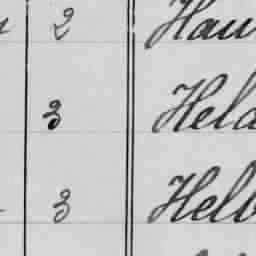 2 Hau
3 Hela
3 Helb